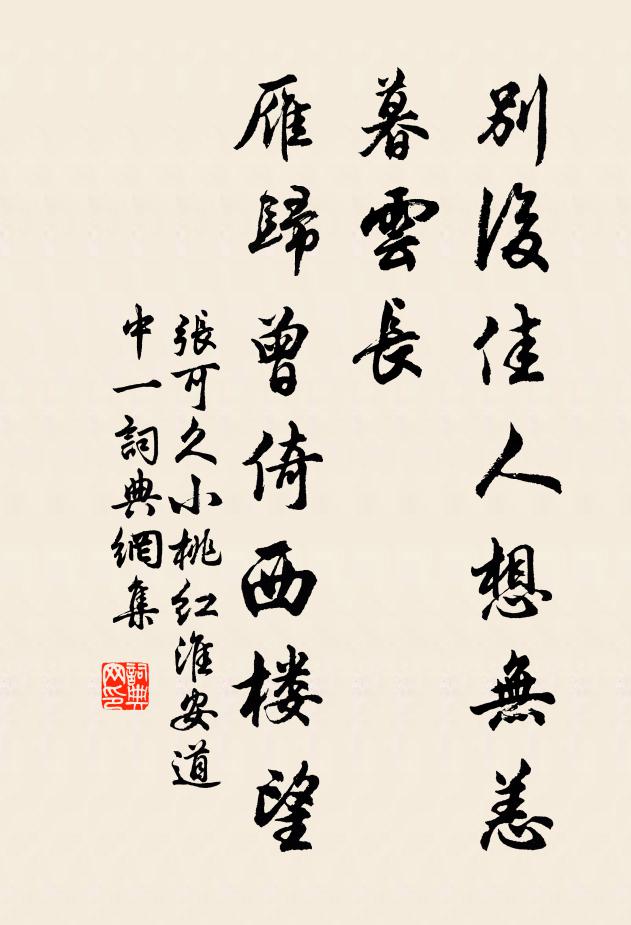 別後佳人想無恙
暮雲長
雁歸曾倚西楼望
張可久小桃紅淮安道
中一詞典網集
詞典網印